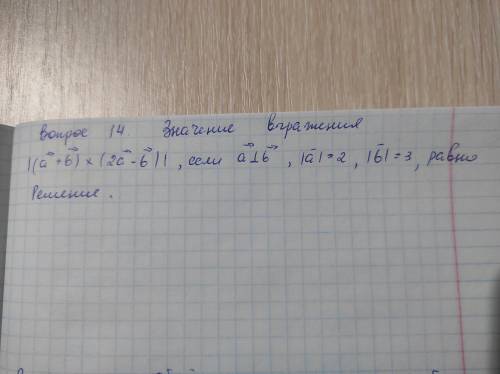 вопрос 14. Значение выражения
|(a⃗ + b⃗) × (2a⃗ - b⃗)|, если a⃗ ⊥ b⃗, |a̅| = 2, |b̅| = 3, равно
Решение.